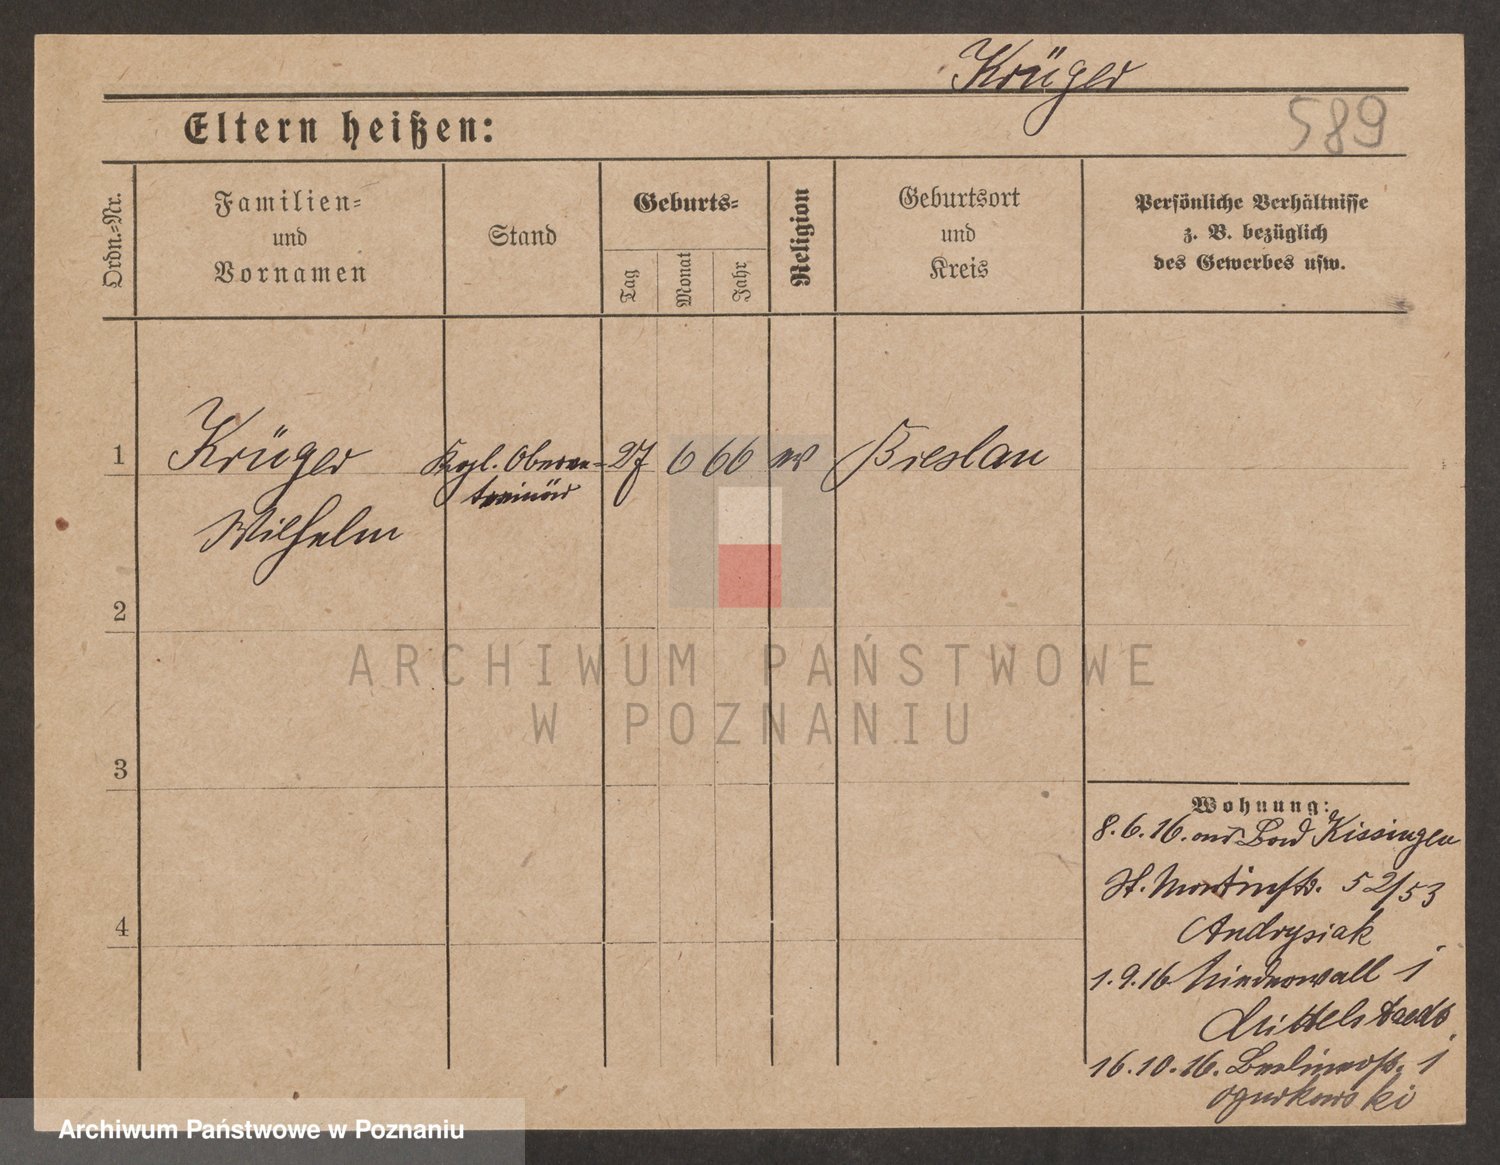 Krüger
589
Eltern heißen:
Ordn.-Nr.
Familien-
und
Vornamen
Stand
Geburts-
Tag
Monat
Jahr
Religion
Geburtsort
und
Kreis
Persönliche Verhältnisse
z. B. bezüglich
des Gewerbes usw.
1
Krüger
Kgl. Oberve-
27
6
66
ev
Breslau
terinär
Wilhelm
2
3
4
Wohnung:
8.6.16. aus Bad Kissingen
St. Martinstr. 52/53
Andrysiak
1.9.16 Niederwall 1
Mittelstaedt
16.10.16. Berlinerstr. 1
Ogurkowski
ARCHIWUM PAŃSTWOWE
W POZNANIU
Archiwum Państwowe w Poznaniu